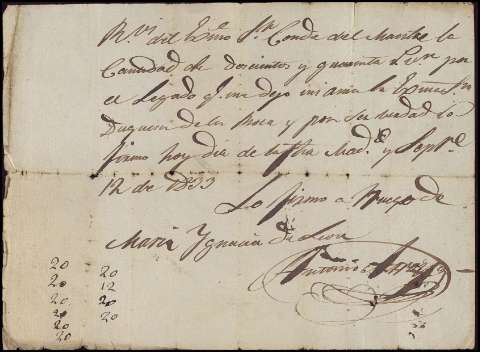 R.vi del Exmo Sr. Conde del Montijo la
Cantidad de doscientos y quarenta por
el Legado q.e me dejo mi ama la Exma S.ra
Duquesa de la Roca y por ser verdad lo
firmo hoy dia de la fha Mad. y Sept.e
12 de 1833
Lo firmo a Ruego de
Maria Ygnacia de Leon
Antonio
20 20
20 12
20 20
20 20
20
20